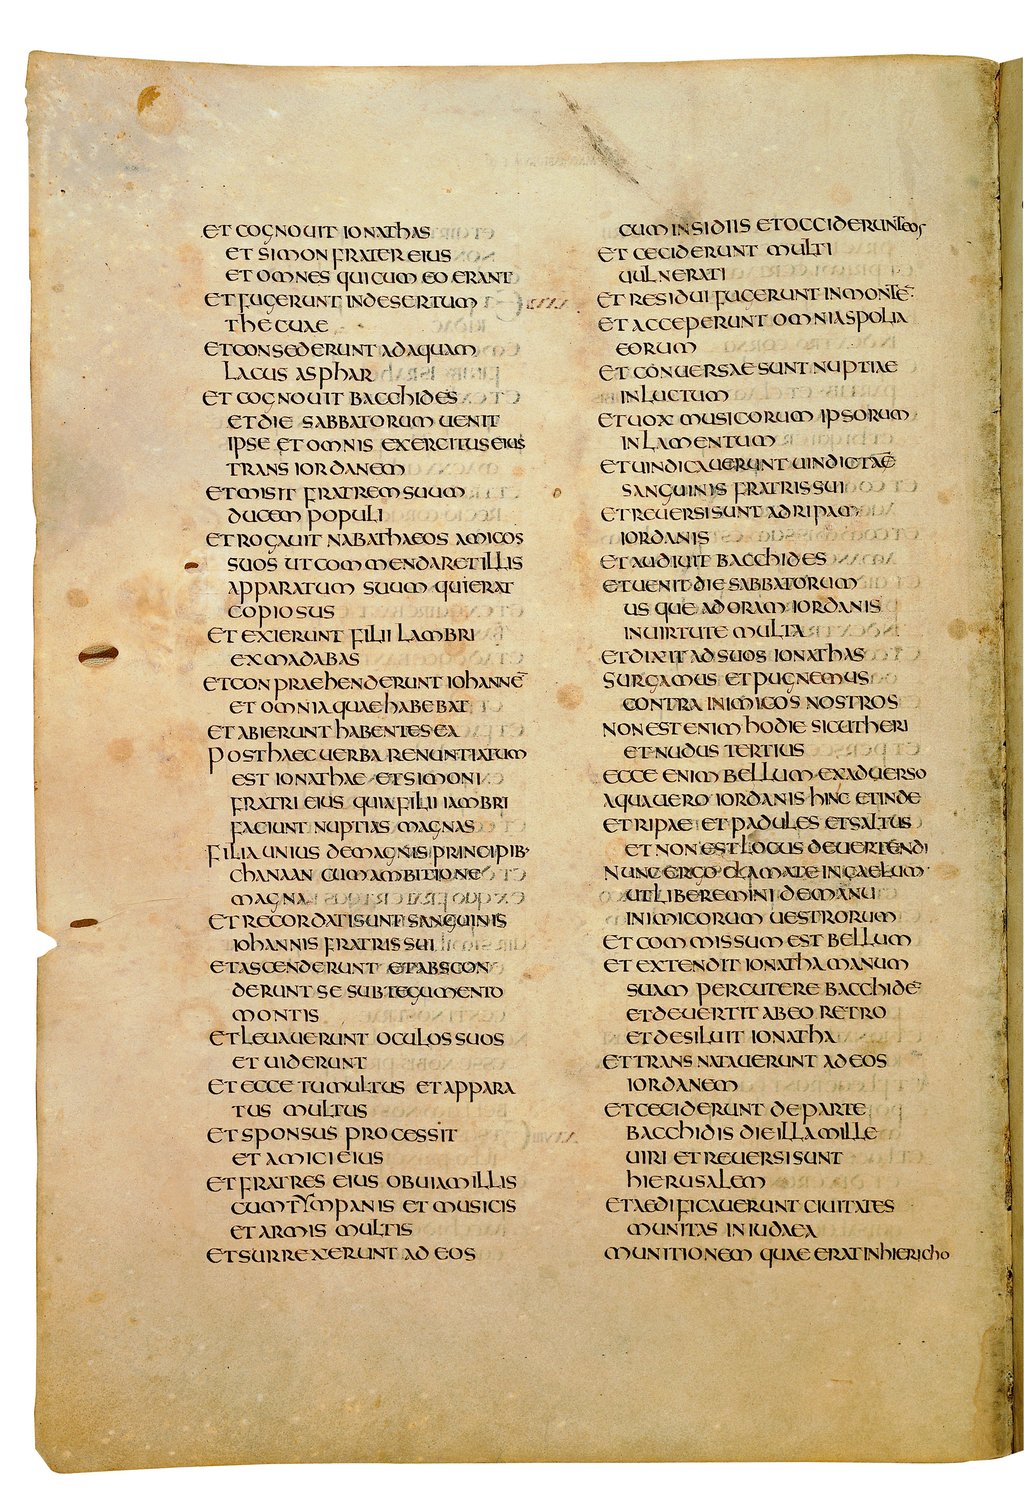 ET COGNOUIT IONATHAS
ET SIMON FRATER EIUS
ET OMNES QUI CUM EO ERANT
ET FUGERUNT IN DESERTUM
THECUAE
ET CONSEDERUNT AD AQUAM
LACUS ASPHAR
ET COGNOUIT BACCHIDES
ET DIE SABBATORUM UENIT
IPSE ET OMNIS EXERCITUS EIUS
TRANS IORDANEM
ET MISIT FRATREM SUUM
DUCEM POPULI
ET ROGAUIT NABATHAEOS AMICOS
SUOS UT COMMENDARET ILLIS
APPARATUM SUUM QUI ERAT
COPIOSUS
ET EXIERUNT FILII IAMBRI
EX MADABAS
ET CONPRAEHENDERUNT IOHANNĒ
ET OMNIA QUAE HABEBAT
ET ABIERUNT HABENTES EA
POST HAEC UERBA RENUNTIATUM
EST IONATHAE ET SIMONI
FRATRI EIUS QUIA FILII IAMBRI
FACIUNT NUPTIAS MAGNAS
FILIA UNIUS DE MAGNIS PRINCIPIB·
CHANAAN CUM AMBITIONE
MAGNA
ET RECORDATI SUNT SANGUINIS
IOHANNIS FRATRIS SUI
ET ASCENDERUNT ET ABSCON
DERUNT SE SUB TEGUMENTO
MONTIS
ET LEUAUERUNT OCULOS SUOS
ET UIDERUNT
ET ECCE TUMULTUS ET APPARA
TUS MULTUS
ET SPONSUS PROCESSIT
ET AMICI EIUS
ET FRATRES EIUS OBUIAM ILLIS
CUM TYMPANIS ET MUSICIS
ET ARMIS MULTIS
ET SURREXERUNT AD EOS
CUM INSIDIIS ET OCCIDERUNT EOS
ET CECIDERUNT MULTI
UULNERATI
ET RESIDUI FUGERUNT IN MONTĒ
ET ACCEPERUNT OMNIA SPOLIA
EORUM
ET CONUERSAE SUNT NUPTIAE
IN LUCTUM
ET UOX MUSICORUM IPSORUM
IN LAMENTUM
ET UINDICAUERUNT UINDICTĀ
SANGUINIS FRATRIS SUI
ET REUERSI SUNT AD RIPAM
IORDANIS
ET AUDIUIT BACCHIDES
ET UENIT DIE SABBATORUM
USQUE AD ORAM IORDANIS
IN UIRTUTE MULTA
ET DIXIT AD SUOS IONATHAS
SURGAMUS ET PUGNEMUS
CONTRA INIMICOS NOSTROS
NON EST ENIM HODIE SICUT HERI
ET NUDUS TERTIUS
ECCE ENIM BELLUM EX ADUERSO
AQUA UERO IORDANIS HINC ET INDE
ET RIPAE ET PADULES ET SALTUS
ET NON EST LOCUS DEUERTENDI
NUNC ERGO CLAMATE IN CAELUM
UT LIBEREMINI DE MANU
INIMICORUM UESTRORUM
ET COMMISSUM EST BELLUM
ET EXTENDIT IONATHA MANUM
SUAM PERCUTERE BACCHIDĒ
ET DEUERTIT AB EO RETRO
ET DESILUIT IONATHA
ET TRANSNATAUERUNT AD EOS
IORDANEM
ET CECIDERUNT DE PARTE
BACCHIDIS DIE ILLA MILLE
UIRI ET REUERSI SUNT
HIERUSALEM
ET AEDIFICAUERUNT CIUITATES
MUNITAS IN IUDAEA
MUNITIONEM QUAE ERAT IN HIERICHO